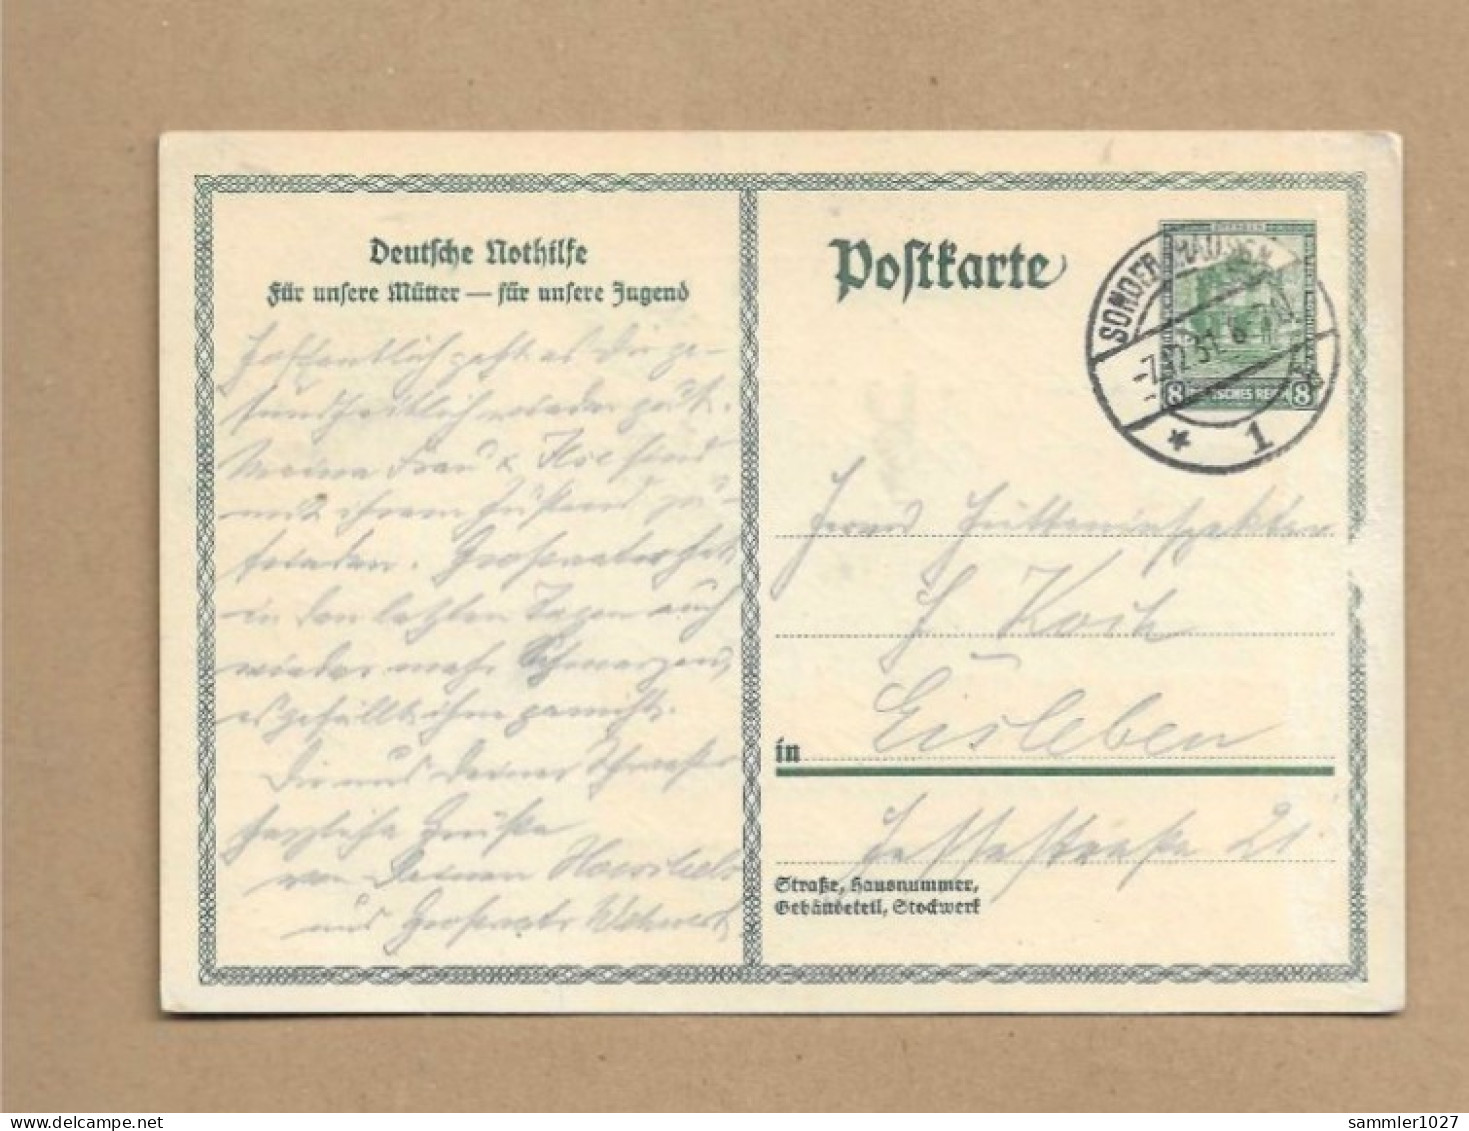 Deutsche Nothilfe
Für unsere Mütter — für unsere Jugend
Hoffentlich geht es Dir ge-
sundheitlich wieder gut.
Meine Frau & Ilse sind
mit ihrem Zustand zu-
frieden. Großvater hat
in den letzten Tagen auch
wieder mehr Schmerzen,
es gefällt ihm garnicht.
Dir und Deiner Schwester
herzliche Grüße
von Deinen
und Großvater
Postkarte
SONDERSHAUSEN
-7.12.31. 6-7 N
* 1
8 DEUTSCHES REICH 8
Herrn Hütteninspektor
Koch
in Eisleben
21
Straße, Hausnummer,
Gebäudeteil, Stockwerk
sammler1027